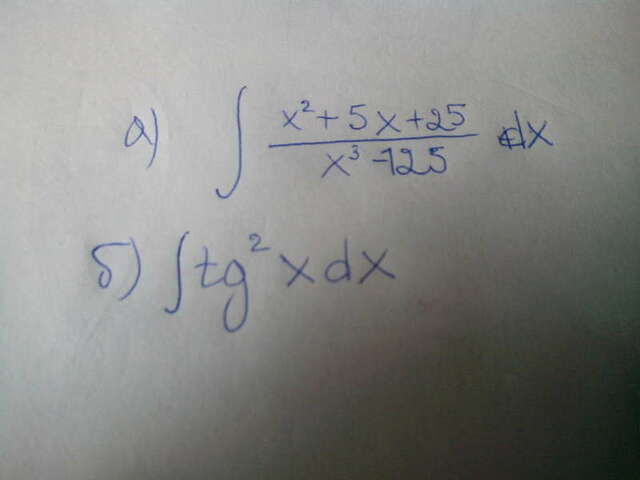 а) ∫ (x² + 5x + 25)/(x³ - 125) dx
б) ∫ tg² x dx